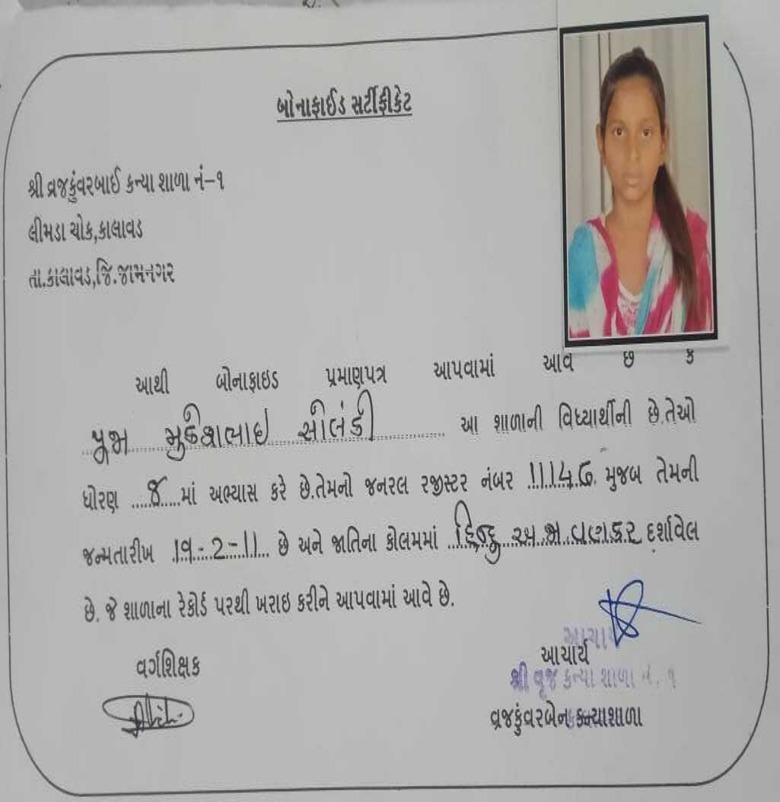 બોનાફાઈડ સર્ટીફીકેટ
શ્રી વ્રજકુંવરબાઈ કન્યા શાળા નં-૧
લીમડા ચોક,કાલાવડ
તા.કાલાવડ,જિ.જામનગર
આથી બોનાફાઇડ પ્રમાણપત્ર આપવામાં આવે છે કે
પૂજા મુકેશભાઇ સોલંકી આ શાળાની વિધ્યાર્થીની છે.તેઓ
ધોરણ ૪ માં અભ્યાસ કરે છે.તેમનો જનરલ રજીસ્ટર નંબર મુજબ તેમની
જન્મતારીખ 19-2-11 છે અને જાતિના કોલમમાં હિન્દુ અ જા વણકર દર્શાવેલ
છે. જે શાળાના રેકોર્ડ પરથી ખરાઇ કરીને આપવામાં આવે છે.
વર્ગશિક્ષક
આચાર્ય
આચાર્ય
શ્રી વૃજ કન્યા શાળા નં. ૧
વ્રજકુંવરબેન કન્યાશાળા